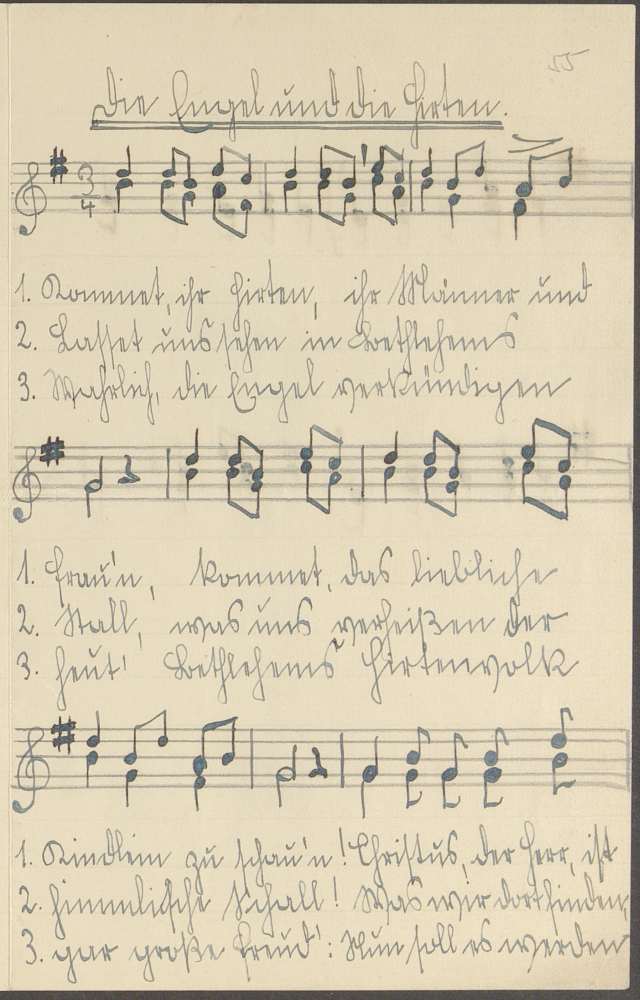 55
Die Engel und die Hirten.
3
4
1. Kommet, ihr Hirten, ihr Männer und
2. Lasset uns sehen in Bethlehems
3. Wahrlich, die Engel verkündigen
1. Frau'n, kommet, das liebliche
2. Stall, was uns verheißen der
3. heut' Bethlehems Hirtenvolk
1. Kindlein zu schau'n! Christus, der Herr, ist
2. himmlische Schall! Was wir dort finden,
3. gar große Freud': Nun soll es werden